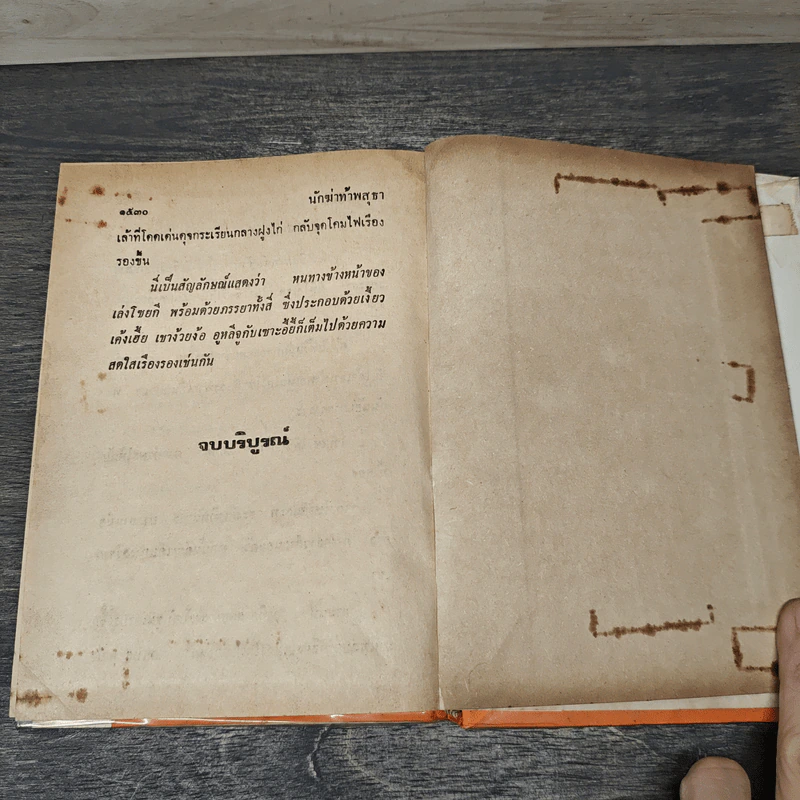 ๑๕๓๐
นักฆ่าท้าพสุธา
เล้าที่โดดเด่นดุจกระเรียนกลางฝูงไก่ กลับจุดโคมไฟเรือง
รองขึ้น
นี่เป็นสัญลักษณ์แสดงว่า หนทางข้างหน้าของ
เล่งโซยกี พร้อมด้วยภรรยาทั้งสี่ ซึ่งประกอบด้วยเงี้ยว
เค้งเฮี้ย เขาง้วยง้อ อูหลีจูกับเซาะอี้อี้ก็เต็มไปด้วยความ
สดใสเรืองรองเช่นกัน
จบบริบูรณ์